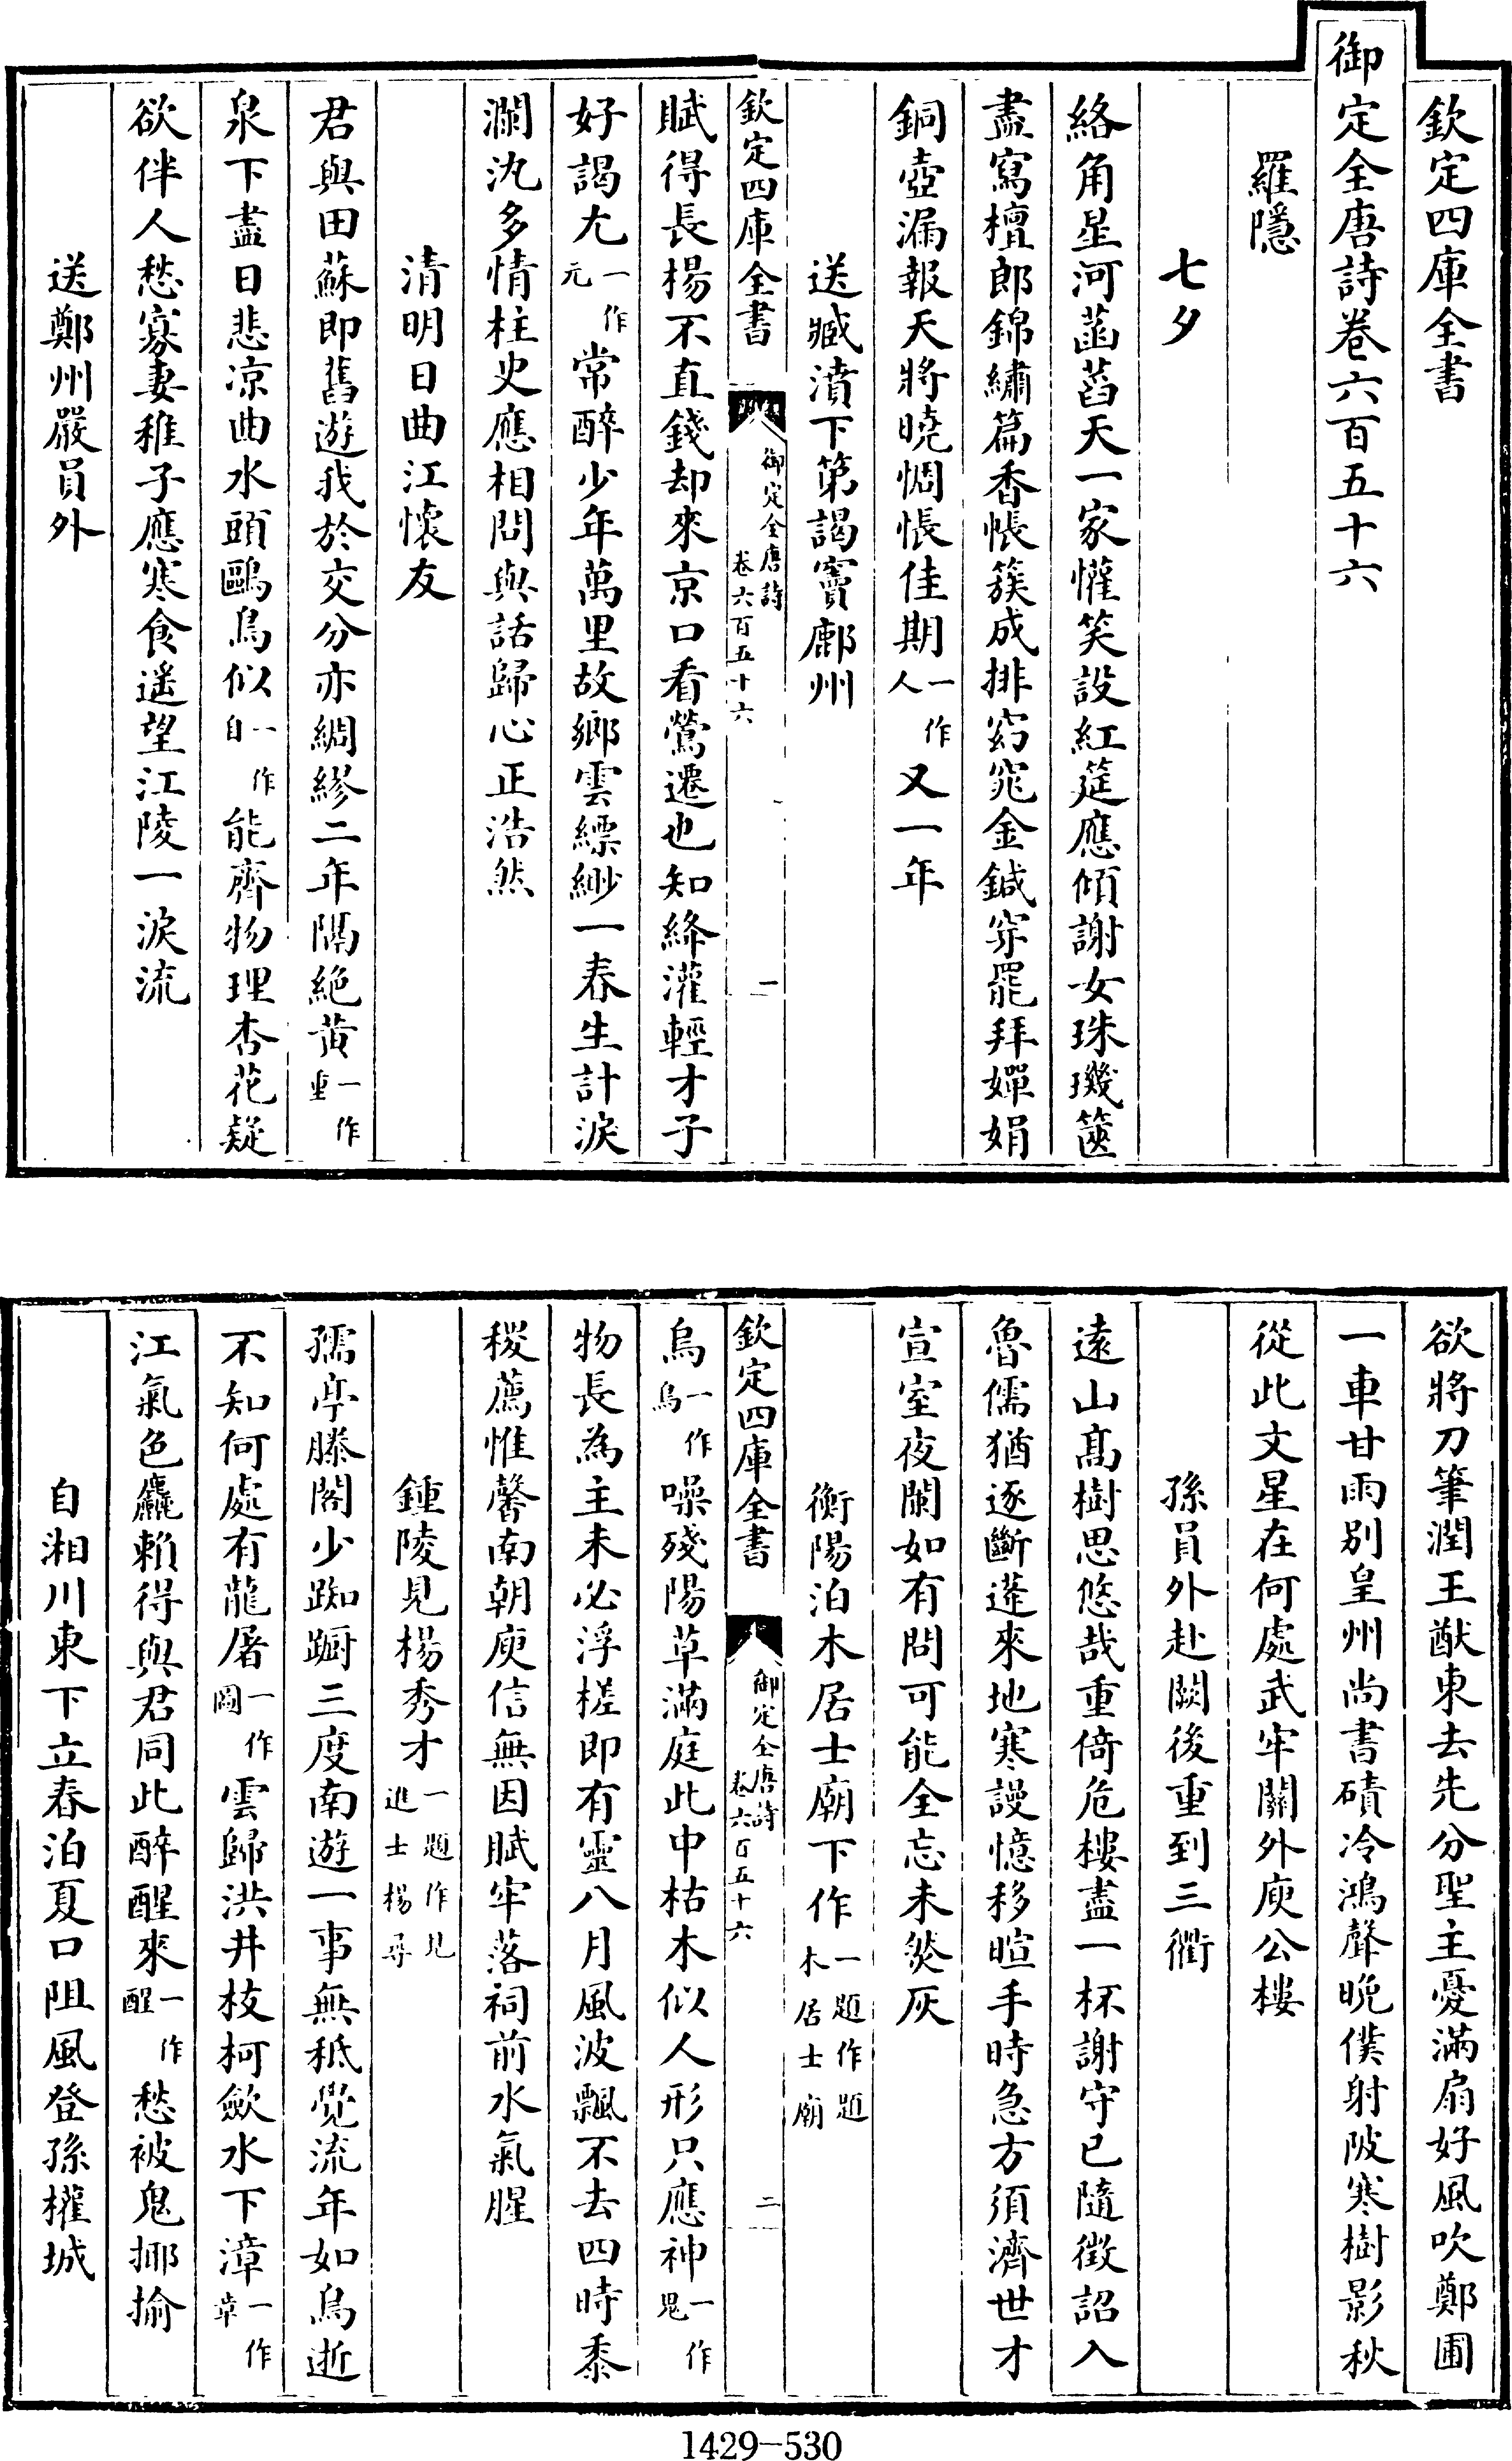 欽定四庫全書
御定全唐詩卷六百五十六
羅隱
七夕
絡角星河菡萏天一家懽笑設紅筵應傾謝女珠璣篋
盡寫檀郎錦繡篇香帳簇成排窈窕金鍼穿罷拜嬋娟
銅壺漏報天將曉惆悵佳期一作人又一年
送臧濆下第謁竇鄜州
欽定四庫全書
御定全唐詩
卷六百五十六
一
賦得長楊不直錢却來京口看鶯遷也知絳灌輕才子
好謁尢一作元常醉少年萬里故鄉雲縹緲一春生計淚
瀾汍多情柱史應相問與話歸心正浩然
清明日曲江懷友
君與田蘇即舊遊我於交分亦綢繆二年隔絶黄一作重
泉下盡日悲凉曲水頭鷗鳥似一作自能齊物理杏花疑
欲伴人愁寡妻稚子應寒食遥望江陵一淚流
送鄭州嚴員外
欲將刀筆潤王猷東去先分聖主憂滿扇好風吹鄭圃
一車甘雨别皇州尚書磧冷鴻聲晩僕射陂寒樹影秋
從此文星在何處武牢關外庾公樓
孫員外赴闕後重到三衢
逺山髙樹思悠哉重倚危樓盡一杯謝守已隨徵詔入
魯儒猶逐斷蓬來地寒謾憶移暄手時急方須濟世才
宣室夜闌如有問可能全忘未然灰
衡陽泊木居士廟下作一題作題木居士廟
欽定四庫全書
御定全唐詩
卷六百五十六
二
烏一作鳥噪殘陽草滿庭此中枯木似人形只應神一作鬼
物長為主未必浮槎即有靈八月風波飄不去四時黍
稷薦惟馨南朝庾信無因賦牢落祠前水氣腥
鍾陵見楊秀才一題作見進士楊尋
孺亭滕閣少踟蹰三度南遊一事無秪覺流年如鳥逝
不知何處有龍屠一作圖雲歸洪井枝柯歛水下漳一作章
江氣色麤賴得與君同此醉醒來一作醒愁被鬼揶揄
自湘川東下立春泊夏口阻風登孫權城
1429-530